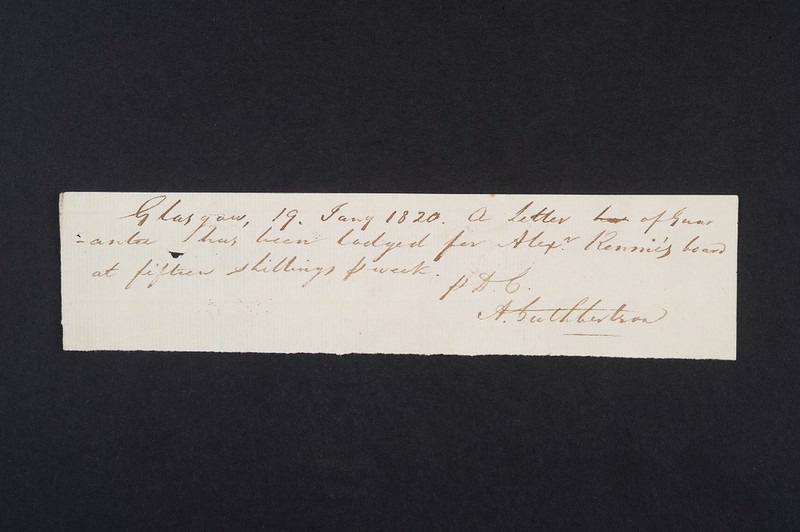 Glasgow, 19. Jany 1820. A Letter of Guar
=antee has been lodged for Alexr. Rennie's board
at fifteen shillings p week.
p D. C.
A. Cuthbertson